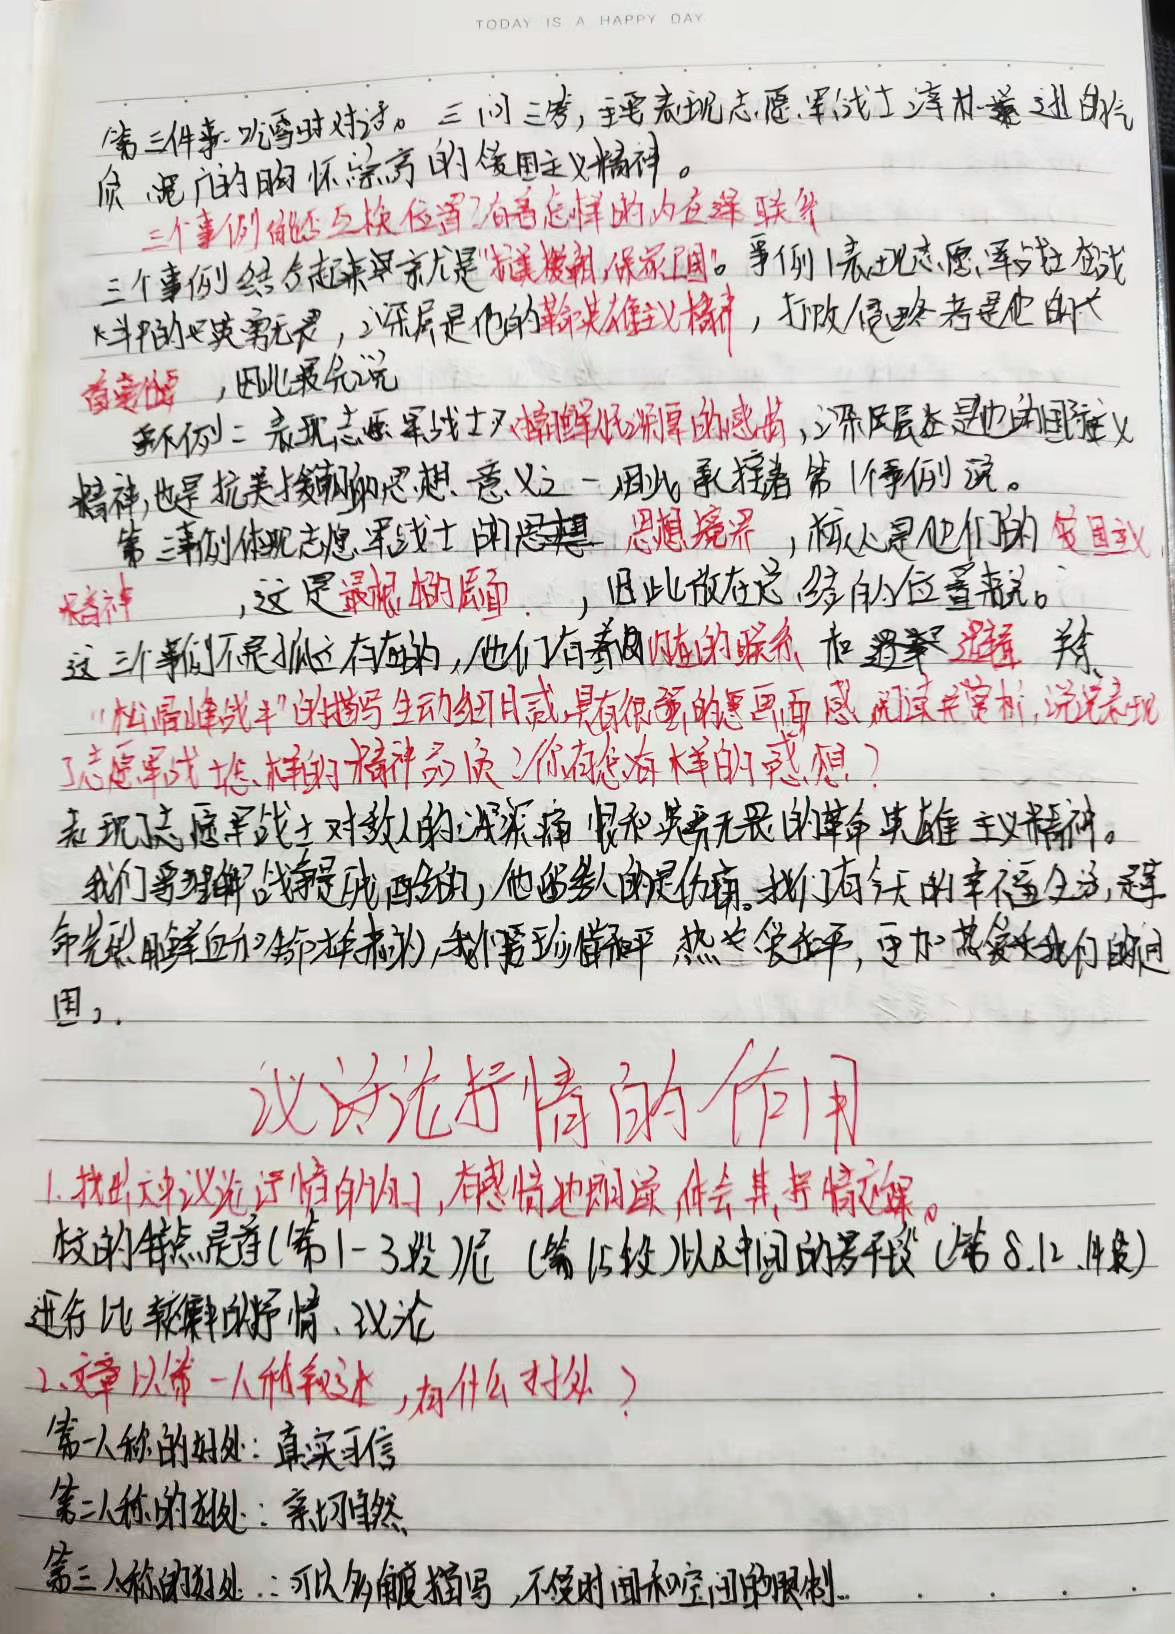 TODAY IS A HAPPY DAY
第三件事:吃雪时对话。三问三答,主要表现志愿军战士淳朴谦逊的气
质 宽广的胸怀崇高的爱国主义精神。
三个事例能否互换位置?有着怎样的内在逻联系
三个事例结合起来其就是"抗美援朝,保家卫国"。事例1表现志愿军战士在战
斗中的英勇无畏,深层是他的革命英雄主义精神,打败侵略者是他的
首要任务,因此最先说
事例二表现志愿军战士对朝鲜人深厚的感情,深层是他的国际主义
精神,也是抗美援朝的思想意义之一,因此承接着第1件事例说。
第三事例体现志愿军战士的 思想境界,核心是他们的爱国主义
精神,这是最根本的层面,因此放在总结的位置来说。
这三个事例不是孤立存在的,他们有着内在的联系和逻辑关系
"松骨峰战斗"的描写生动细目感具有很强的画面感,阅读并赏析,说说表现
了志愿军战士怎样的精神品质?你有怎样的感想?
表现了志愿军战士对敌人的深深痛恨和英勇无畏的革命英雄主义精神。
我们要理解战争是残酷的,他留给人的是伤痛。我们有今天的幸福生活,是革
命先烈用鲜血和生命换来的,我们要珍惜和平,热爱和平,更加热爱我们的祖
国。
议论抒情的作用
1.找出文中议论抒情的句子,有感情地朗读,体会其抒情效果。
本文的特点是在(第1-3段)尾(第15段)以及中间的若干段(第8.12.14段)
进行比较集中的抒情、议论
2.文章以第一人称叙述,有什么好处?
第一人称的好处:真实可信
第二人称的好处:亲切自然
第三人称的好处:可以多角度描写,不受时间和空间的限制.